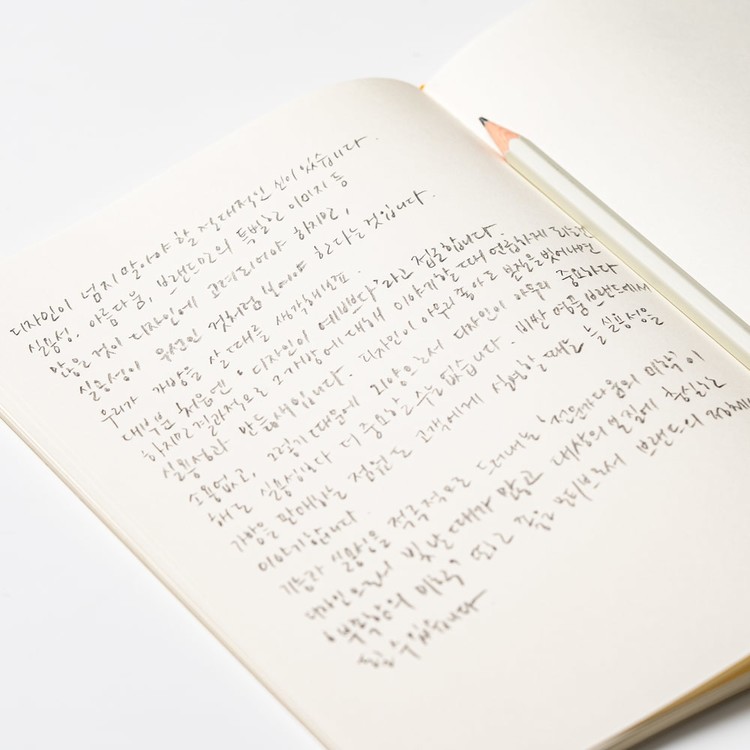 디자인이 넘지 말아야 할 절대적인 선이 있습니다.
실용성, 아름다움, 브랜드만의 특별한 이미지 등
많은 것이 디자인에 고려되어야 하지만,
실용성이 우선인 것처럼 보여야 한다는 것입니다.
우리가 가방을 살 때를 생각해보죠.
대부분 처음엔 '디자인이 예쁘다'라고 접근합니다.
하지만 결과적으로 그 가방에 대해 이야기할 때 연급하게 되는건
실용성과 만듦새입니다. 디자인이 아무리 좋아도 본질을 벗어나면
소용없고, 그렇기 때문에 외양으로서 디자인이 아무리 중요하다
해도 실용성보다 더 중요할 수는 없습니다. 비싼 명품 브랜드에서
가방을 판매하는 점원도 고객에게 설명할 때는 늘 실용성을
이야기합니다.
기능과 실용성을 적극적으로 드러내는 '다움의 미학'이
디자인으로서 빛날 때가 많고 대상의 본질에 충실한
미학' 또한 같은 모티브로서 브랜드의
될 수 있습니다